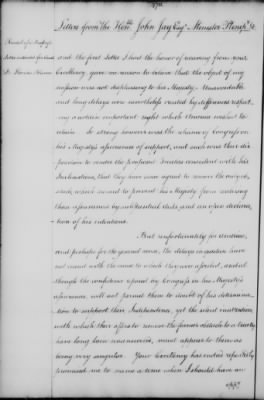 Letters from the Honble John Jay Esqr Minister Plenipo &c
and the first Letter I had the honor of receiving from your
Excellency gave me reason to believe that the object of my
mission was not displeasing to his Majesty. Unavoidable
and long delays were nevertheless created by differences respect
ing a certain important right which America wished to
retain. So strong however was the reliance of Congress on
his Majesty's assurances of support, and such was their dis
position to render the proposed Treaties consistent with his
Inclinations, that they have since agreed to remove the
which seemed to prevent his Majesty from
those assurances by substantial aids and an open declara
tion of his intentions.
But unfortunately for America,
and perhaps for the general cause, the delays in question have
not ceased with the cause to which they were ascribed, and al
though the confidence reposed by Congress in his Majesty's
assurances, will not permit them to doubt of his determina
tion to support their Independence, yet the silent inattention
with which their offers to remove the former obstacle to a treaty
have long been received, must appear to them as
being very singular. Your Excellency has indeed repeatedly
promised me to name a time when I should have an